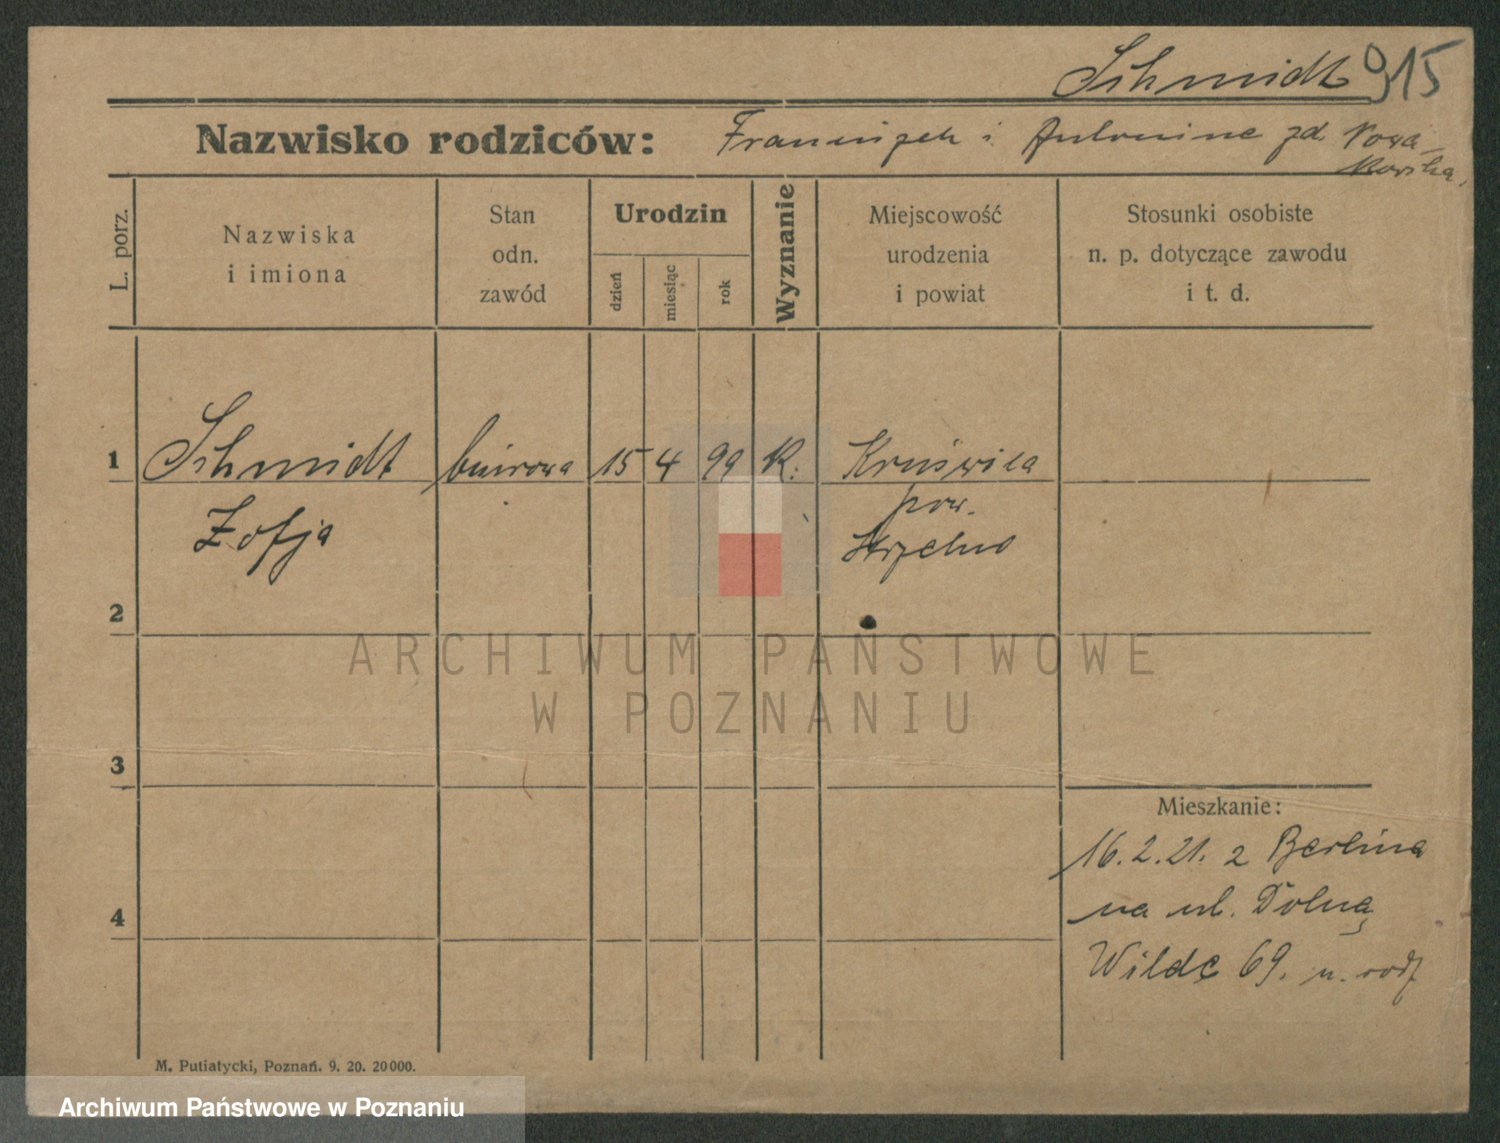 Schmidt 915
Nazwisko rodziców: Franciszek i Antonina zd. Nowa-
kowska.
L. porz.
Nazwiska
i imiona
Stan
odn.
zawód
Urodzin
dzień
miesiąc
rok
Wyznanie
Miejscowość
urodzenia
i powiat
Stosunki osobiste
n. p. dotyczące zawodu
i t. d.
1 Schmidt biurowa 15 4 99 K. Kruświca
Zofja pow.
Strzelno
2
ARCHIWUM PAŃSTWOWE
W POZNANIU
3
Mieszkanie:
16.2.21. z Berlina
4 na ul. Dolną
Wildę 69. u. rodz
M. Putiatycki, Poznań. 9. 20. 20000.
Archiwum Państwowe w Poznaniu